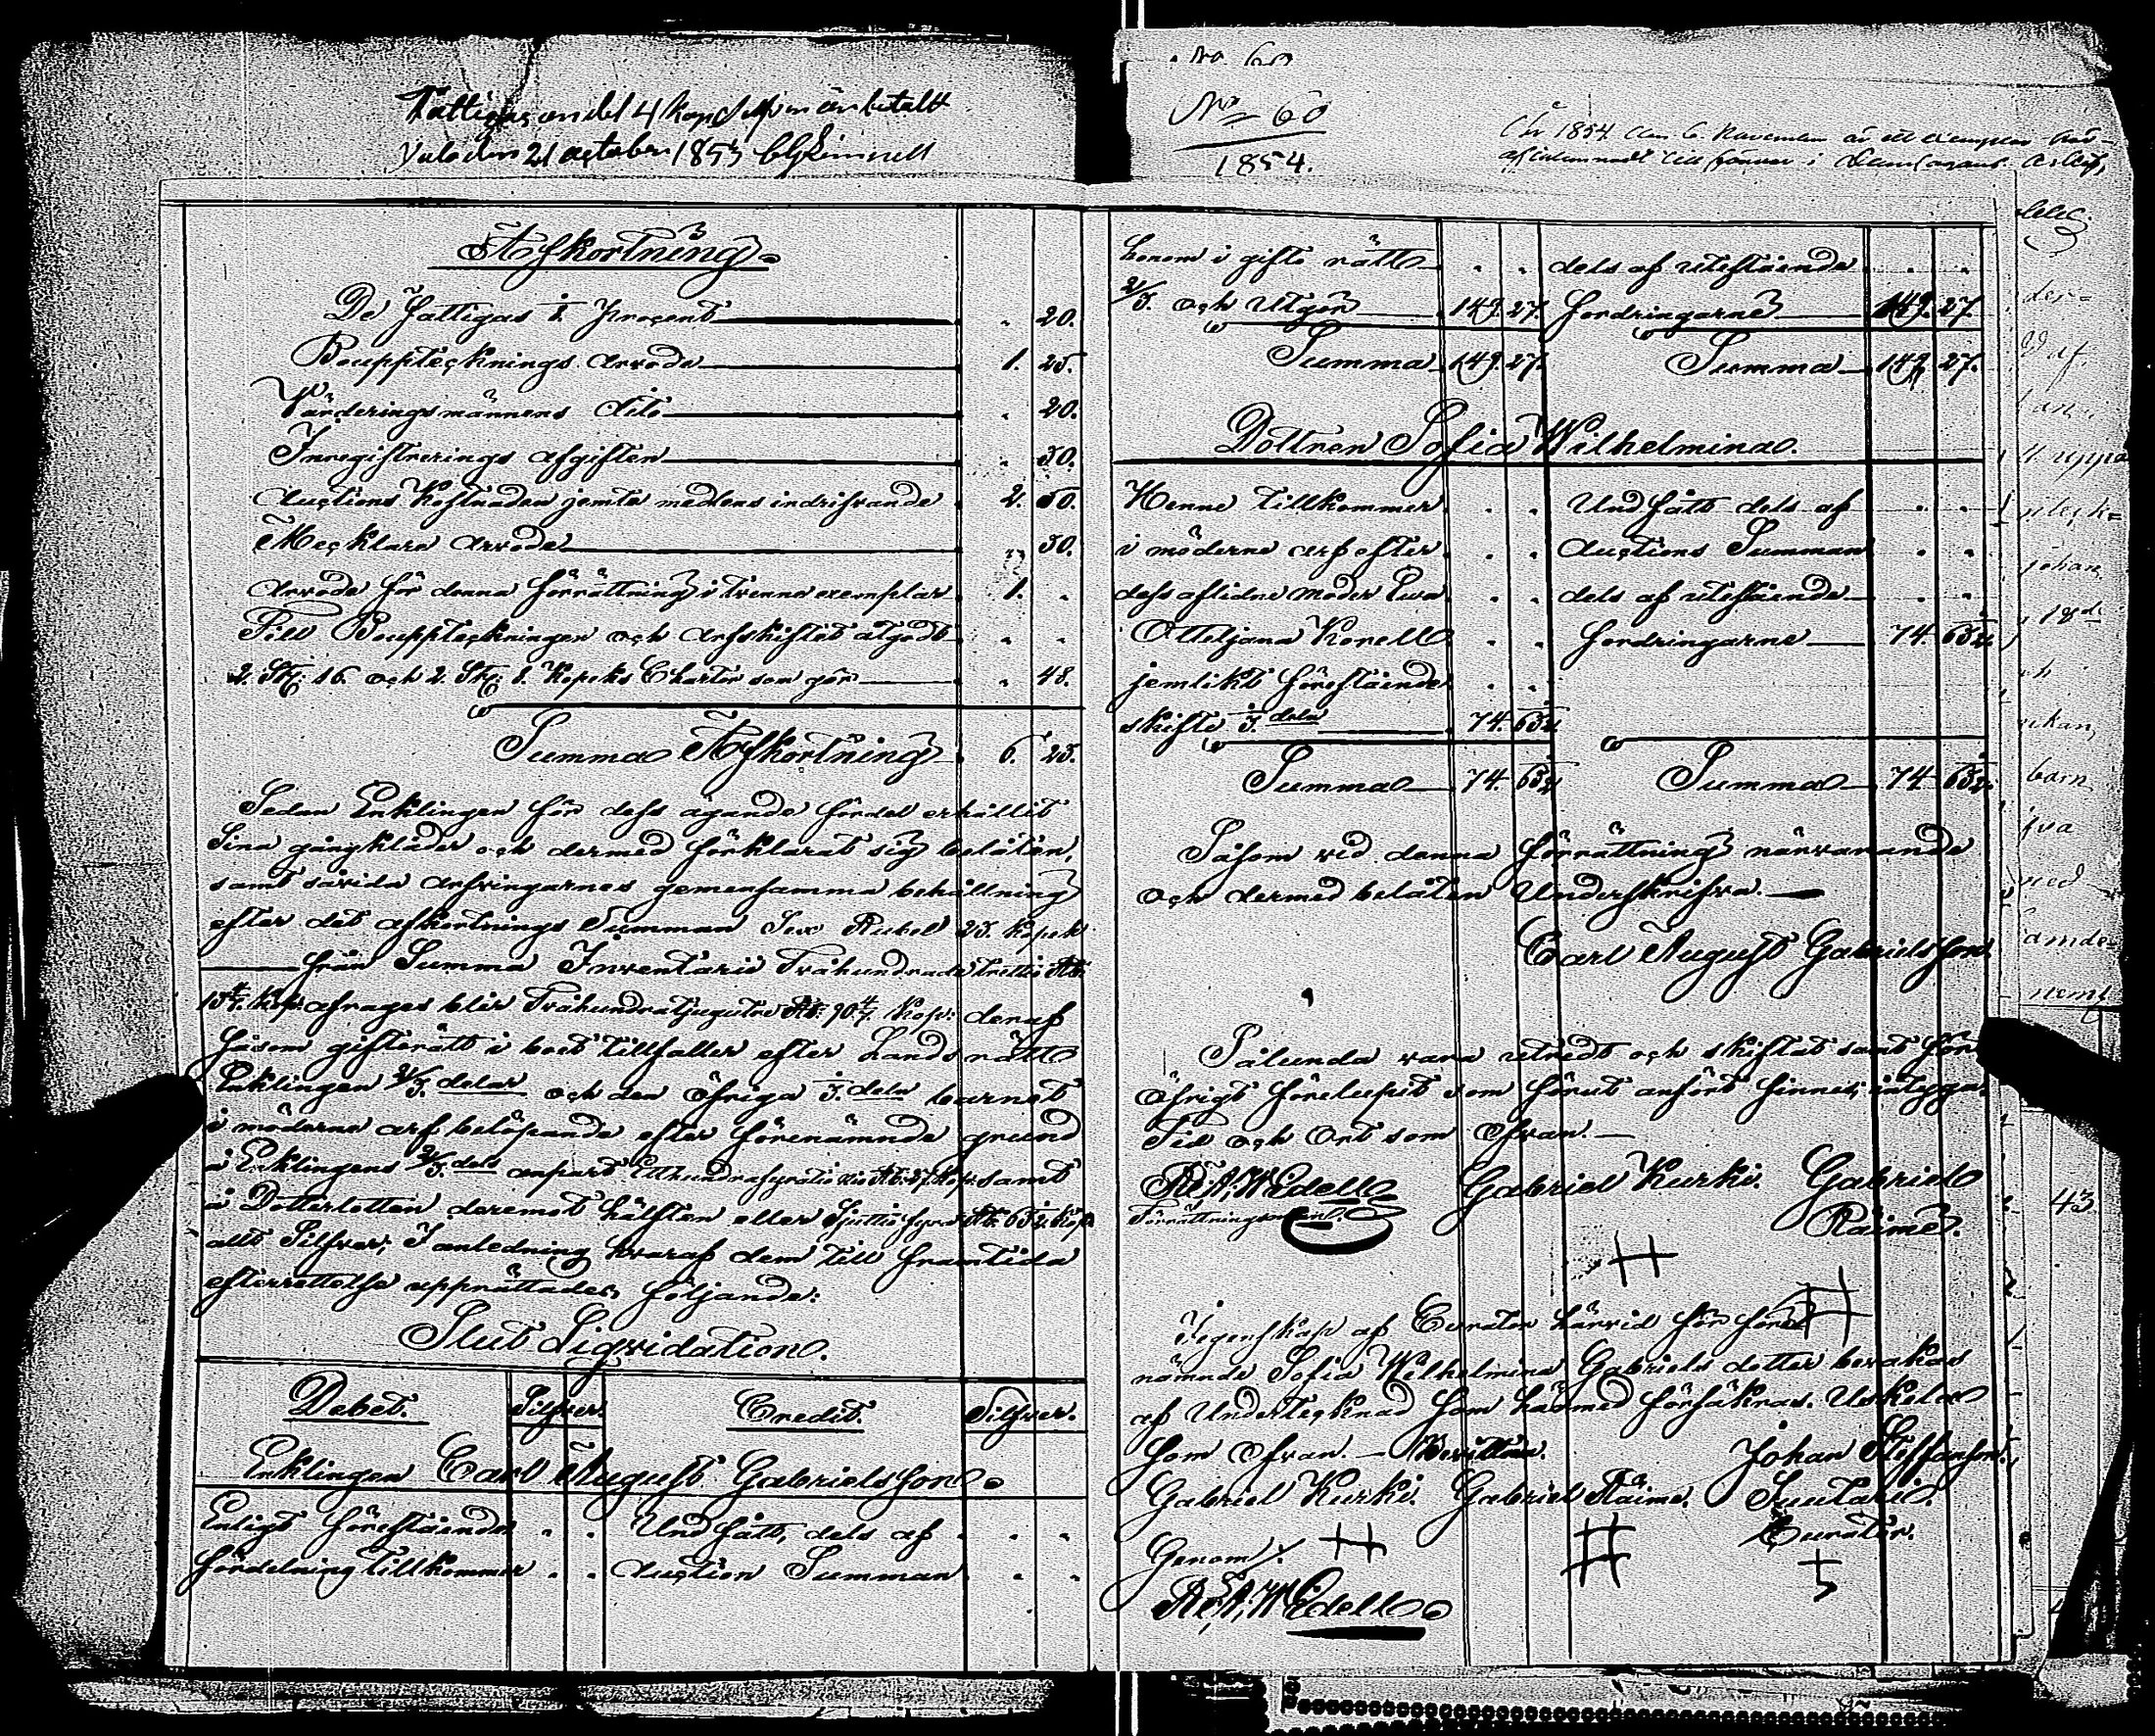 Fattigas andel 4 kop Silfver är betalt
Yulo den 21 october 1853 CGLimnell
Afkortning
De fattigas 1/8 Procent . 20.
Bouppteckning's Arvode 1. 25.
Värderingsmännens dito . 20.
Inregistrerings afgiften . 30.
Auctions Kostnaden jemte medlens indrifvande 2. 50.
Mecklare Arvode . 30.
Arvode för denna förrättning i tvenne exemplar 1. .
Till Bouppteckningen och Arfskiftet åtgådt . .
2. St: 16 och 2. St: 8. Kopeks Charter som gör . 48.
Summa Afkortning 6. 23.
Sedan Enklingen för dess ägande fördel erhållit
Sina gångkläder och dermed förklarat sig belåten,
samt såvida arfvingarnes gemensamma behållning
efter det afkortnings Summan Sex Rubel 23. Kopek
från Summa Inventarii Tvåhundrade trettio Rb:
13 4/7 Kop: afrages blir Tvåhundratjugutre Rb: 90 4/7 Kop: deraf
såsom giftorätt i boet tillfaller efter Lands rätt
Enklingen 2/3 delar och den öfriga 1/3 delen barnet
i möderne arf belöpande efter förenämnde grund
å Enklingens 2/3 dels anpart Etthundrafyratio nio Rb: 27 Kop: samt
å Dotterlotten deremot hälften eller Sjuttiofyra Rb: 63 1/2 Kop
allt Silfver; I anledning hvaraf dem till framtida
efterrättelse upprättades följande:
Slut Liqvidation.
Debet. Silfver. Credit. Silfver.
Enklingen Carl August Gabrielsson
Enligt föreståënde . . Undfått, dels af . .
fördelning tillkommer . . Auction Summan . .
No 60
No 60
1854.
År 1854 den 6. November är ett exemplar här-
af inlemnadt till
honom i gifto rätt . . dels af utestående . .
2/3. och Utgör 149. 27. fordringarne 149. 27.
Summa 149. 27. Summa 149. 27.
Dottren Sofia Wilhelmina.
Henne tillkommer . . Undfått dels af . .
i möderne arf efter . . Auctions Summan . .
dess aflidne Moder Ewa . . dels af utestående . .
Ottiljana Korell . . fordringarne 74. 63 1/2.
jemlikt föreståënde . .
skifte 1/3. delen 74. 63 1/2
Summa 74. 63 1/2 Summa 74. 63 1/2.
Såsom vid denna förrättning närvarande
och dermed belåten Underskrifva.
Carl August Gabrielsson.
Sålunda vara utredt och skiftat samt för
öfrigt förelupit som förut anfört finnes; intyga.
Tid och Ort som Ofvan.
Gabriel Kurki. Gabriel
Förrättningsman. Räime.
I egenskap af Curator härvid för före-
nämnde Sofia Wilhelmina Gabriels dotter bevakas
af Undertecknad som härmed försäkras. Uskela
som Ofvan. Bevittna. Johan Steffansson
Gabriel Kurki. Gabriel Räime. Suutari.
Curator.
Genom